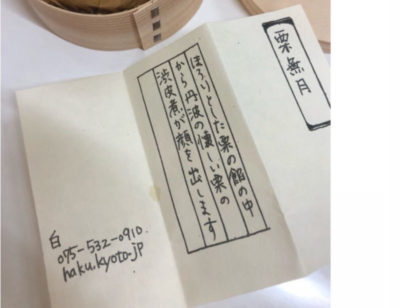 栗無月
ほろりとした栗の餡の中
から丹波の懐しい栗の
渋皮煮が顔を出します
白
075-532-0910.
haku.kyoto.jp